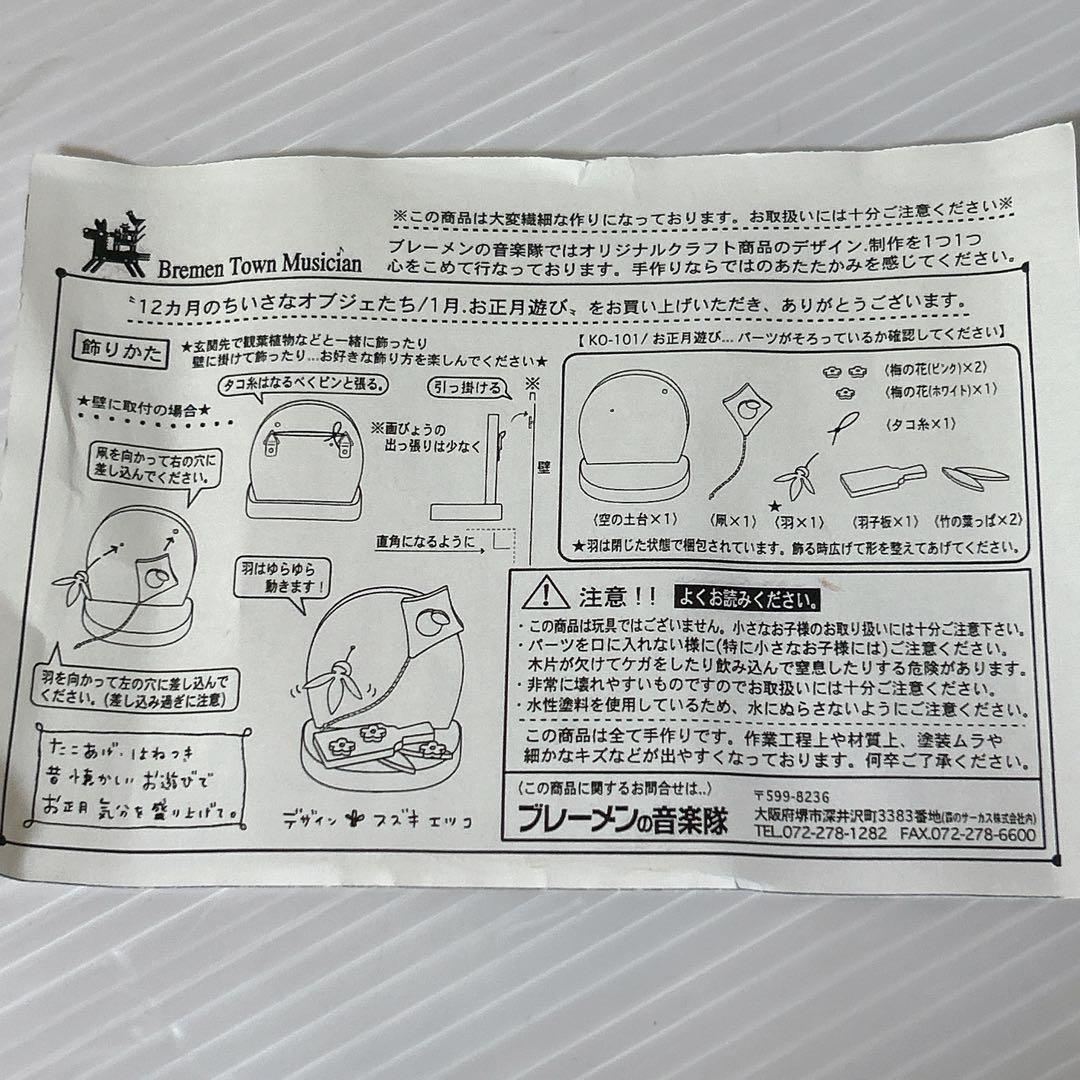 ※この商品は大変繊細な作りになっております。お取扱いには十分ご注意ください※
Bremen Town Musician
ブレーメンの音楽隊ではオリジナルクラフト商品のデザイン.制作を1つ1つ
心をこめて行なっております。手作りならではのあたたかみを感じてください。
〝12カ月のちいさなオブジェたち/1月.お正月遊び〟をお買い上げいただき、ありがとうございます。
飾りかた
★玄関先で観葉植物などと一緒に飾ったり
壁に掛けて飾ったり...お好きな飾り方を楽しんでください★
★壁に取付の場合★
タコ糸はなるべくピンと張る。
引っ掛ける
※
※画びょうの
出っ張りは少なく
壁
直角になるように
凧を向かって右の穴に
差し込んでください。
羽はゆらゆら
動きます！
羽を向かって左の穴に差し込んで
ください。(差し込み過ぎに注意)
たこあげ・はねつき
昔懐かしいお遊びで
お正月気分を盛り上げて。
デザイン スズキ エツコ
【 KO-101/ お正月遊び... パーツがそろっているか確認してください】
〈梅の花(ピンク)×2〉
〈梅の花(ホワイト)×1〉
〈タコ糸×1〉
〈空の土台×1〉 〈凧×1〉 ★〈羽×1〉 〈羽子板×1〉 〈竹の葉っぱ×2〉
★羽は閉じた状態で梱包されています。飾る時広げて形を整えてあげてください。
注意！！ よくお読みください。
・この商品は玩具ではございません。小さなお子様のお取り扱いには十分ご注意下さい。
・パーツを口に入れない様に(特に小さなお子様には)ご注意ください。
木片が欠けてケガをしたり飲み込んで窒息したりする危険があります。
・非常に壊れやすいものですのでお取扱いには十分ご注意ください。
・水性塗料を使用しているため、水にぬらさないようにご注意ください。
この商品は全て手作りです。作業工程上や材質上、塗装ムラや
細かなキズなどが出やすくなっております。何卒ご了承ください。
〈この商品に関するお問合せは..〉
ブレーメンの音楽隊
〒599-8236
大阪府堺市深井沢町3383番地(森のサーカス株式会社内)
TEL.072-278-1282 FAX.072-278-6600